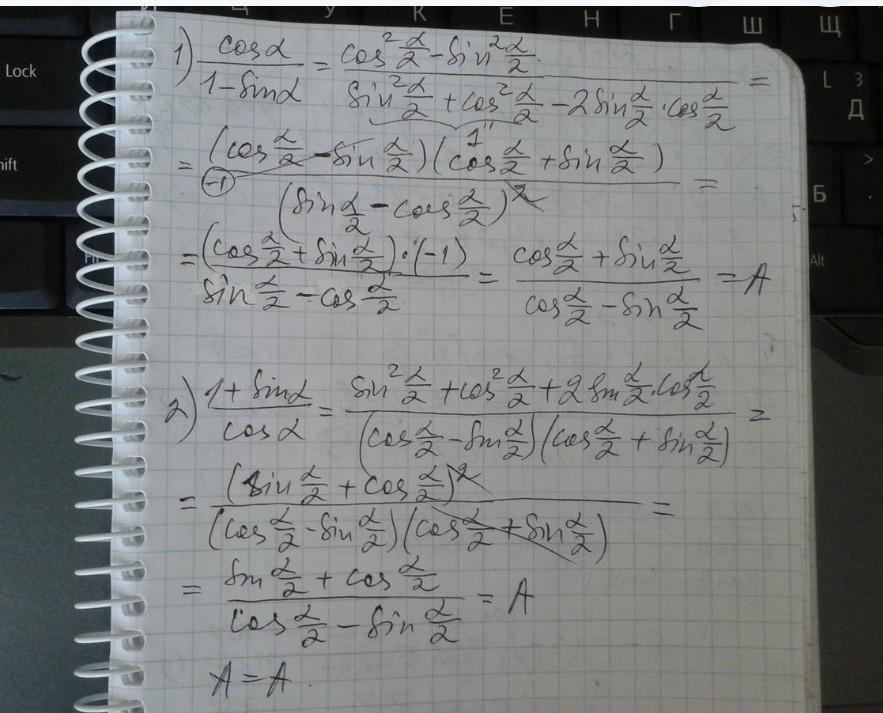 И Ц У К Е Н Г Ш Щ
Lock
L 3 Д
hift
> Б
Alt
1) cosα/(1-sinα) = (cos² α/2 - sin² α/2)/(sin² α/2 + cos² α/2 - 2sin α/2 · cos α/2) =
1
= (cos α/2 - sin α/2)(cos α/2 + sin α/2)/(sin α/2 - cos α/2)² =
-1
= (cos α/2 + sin α/2)·(-1)/(sin α/2 - cos α/2) = (cos α/2 + sin α/2)/(cos α/2 - sin α/2) = A
2) (1 + sinα)/cosα = (sin² α/2 + cos² α/2 + 2 sin α/2 · cos α/2)/((cos α/2 - sin α/2)(cos α/2 + sin α/2)) =
= (sin α/2 + cos α/2)²/((cos α/2 - sin α/2)(cos α/2 + sin α/2)) =
= (sin α/2 + cos α/2)/(cos α/2 - sin α/2) = A
A = A.